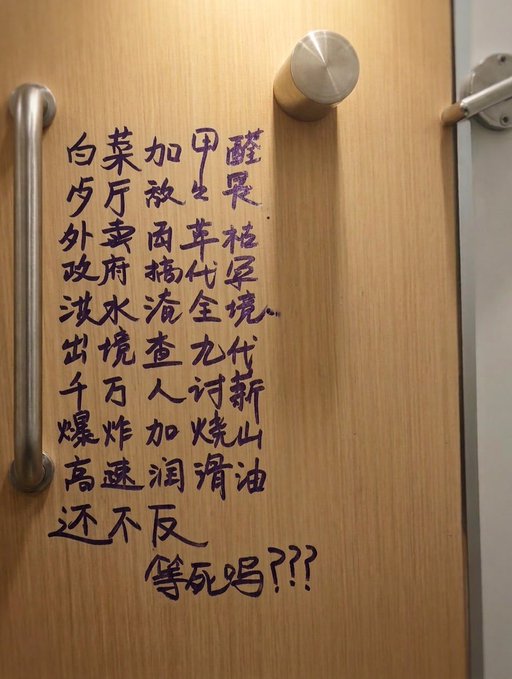 白菜加甲醛
外卖
政府搞代
洪水淹全境
出境查九代
千万人讨薪
爆炸加烧山
高速润滑油
还不反
等死吗???